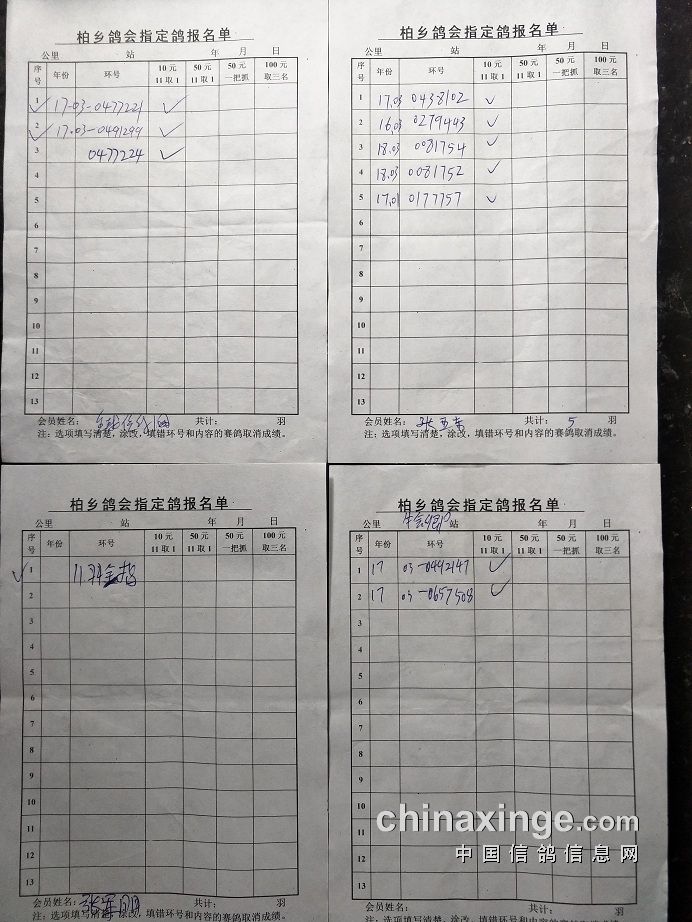 柏乡鸽会指定鸽报名单
公里 站 年 月 日
序号 年份 环号 10元 11取1 50元 11取1 50元 一把抓 100元 取三名
1 17-03-0477221 ✓
2 17.03-0491299 ✓
3 0477224 ✓
4
5
6
7
8
9
10
11
12
13
会员姓名: 共计: 羽
注:选项填写清楚,涂改,填错环号和内容的赛鸽取消成绩。
柏乡鸽会指定鸽报名单
公里 站 年 月 日
序号 年份 环号 10元 11取1 50元 11取1 50元 一把抓 100元 取三名
1 17.03 0438102 ✓
2 16.03 0279443 ✓
3 18.03 0081754 ✓
4 18.03 0081752 ✓
5 17.01 0177757 ✓
6
7
8
9
10
11
12
13
会员姓名: 张 共计: 5 羽
注:选项填写清楚,涂改,填错环号和内容的赛鸽取消成绩。
柏乡鸽会指定鸽报名单
公里 站 年 月 日
序号 年份 环号 10元 11取1 50元 11取1 50元 一把抓 100元 取三名
1 11.羽全指
2
3
4
5
6
7
8
9
10
11
12
13
会员姓名: 张军刚 共计: 羽
注:选项填写清楚,涂改,填错环号和内容的赛鸽取消成绩。
柏乡鸽会指定鸽报名单
公里 站 年 月 日
序号 年份 环号 10元 11取1 50元 11取1 50元 一把抓 100元 取三名
1 17 03-0492147 ✓
2 17 03-0657508 ✓
3
4
5
6
7
8
9
10
11
12
13
会员姓名: 共计: 羽
注:选项填写清楚,涂改,填错环号和内容的赛鸽取消成绩
chinaxinge.com
中国信鸽信息网